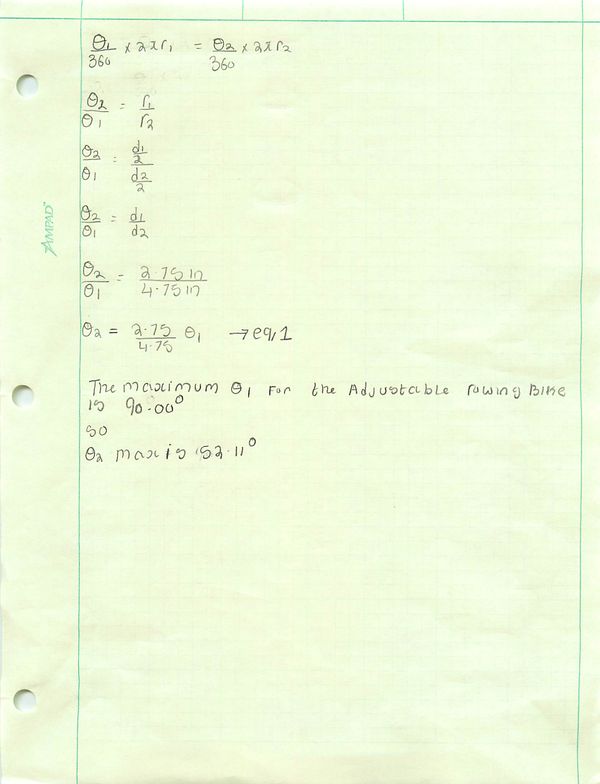 θ1/360 × 2πr1 = θ2/360 × 2πr2
θ2/θ1 = r1/r2
θ2/θ1 = (d1/2)/(d2/2)
θ2/θ1 = d1/d2
AMPAD™
θ2/θ1 = 2.75in/4.75in
θ2 = 2.75/4.75 θ1 → eq,1
The maximum θ1 For the Adjustable rowing Bike
is 90.00°
so
θ2 max is 52.11°